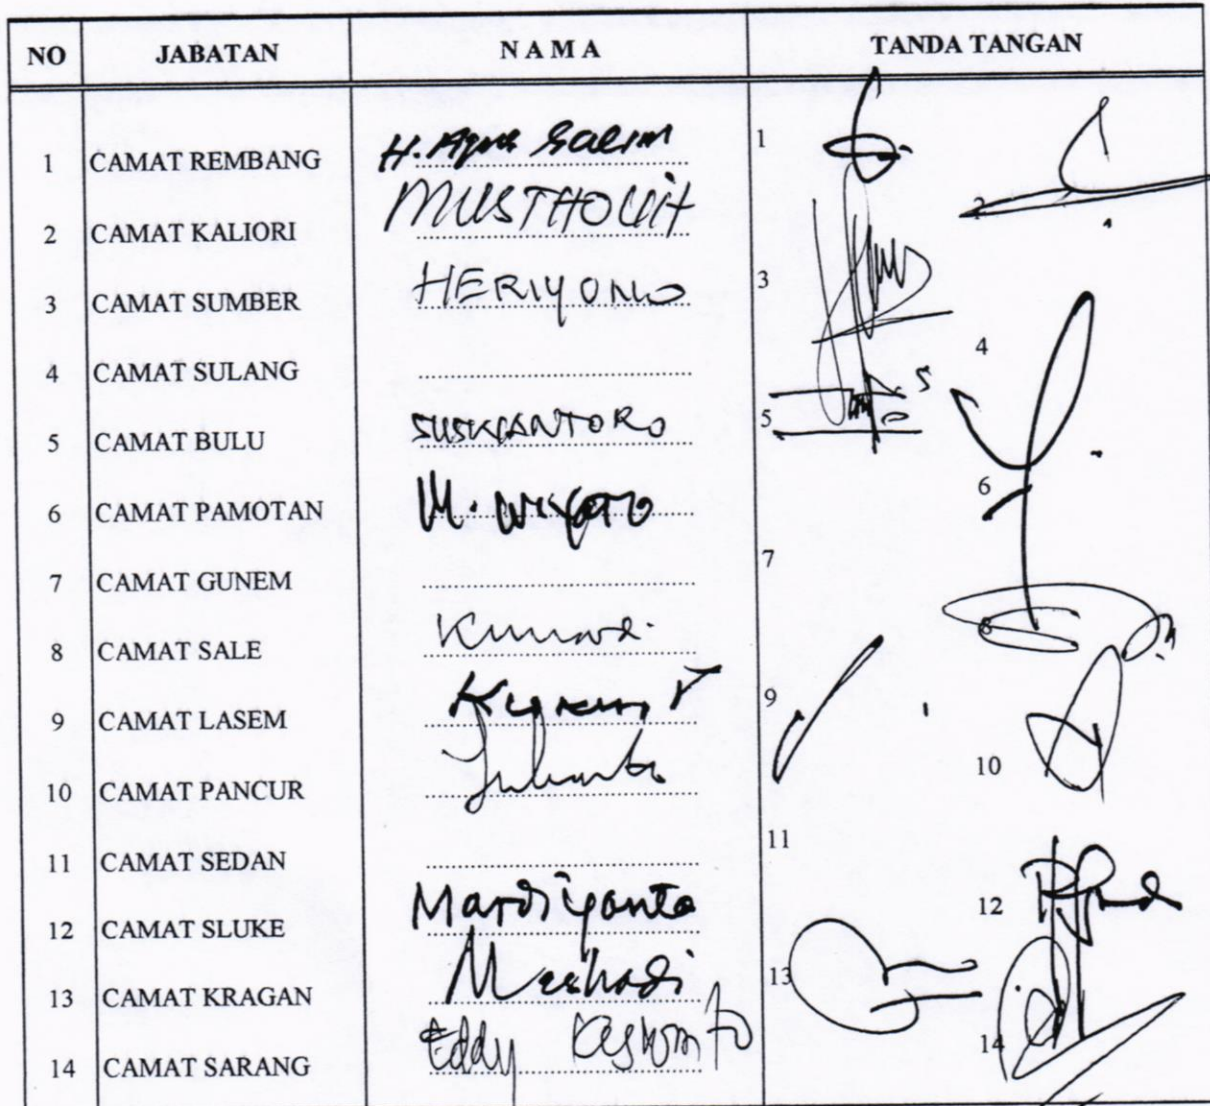 NO JABATAN N A M A TANDA TANGAN
1 CAMAT REMBANG H. Agus Salim 1
2 CAMAT KALIORI MUSTHOLIH 2
3 CAMAT SUMBER HERIYONO 3
4 CAMAT SULANG 4
5 CAMAT BULU SUSKIANTORO 5 5
6 CAMAT PAMOTAN M. WIYOTO 6
7 CAMAT GUNEM 7
8 CAMAT SALE 8
9 CAMAT LASEM 9
10 CAMAT PANCUR 10
11 CAMAT SEDAN 11
12 CAMAT SLUKE Mardiyanto 12
13 CAMAT KRAGAN Mashadi 13
14 CAMAT SARANG Eddy 14